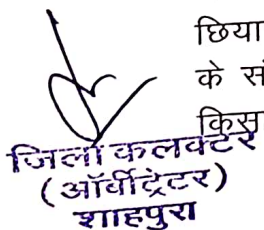 छिया
के सं
किस
जिला कलक्टर
(ऑर्वीट्रेटर)
शाहपुरा